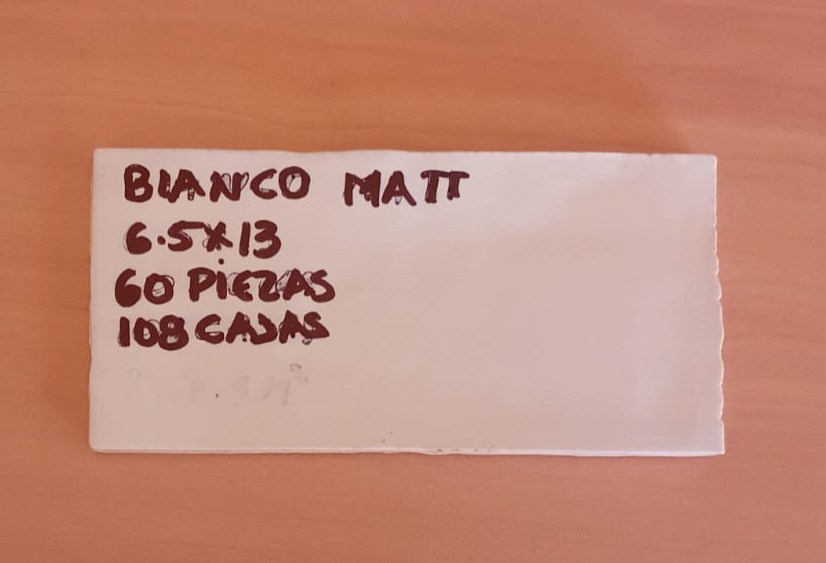 BIANCO MATT
6.5X13
60 PiEZAS
108 CAJAS